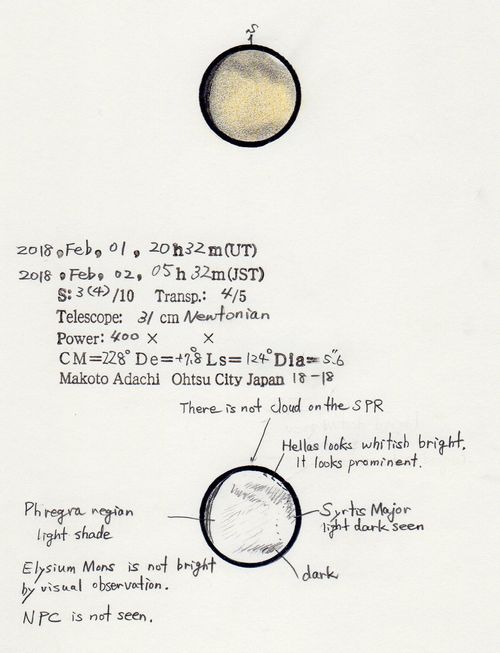 S
2018, Feb, 01, 20h32m(UT)
2018, Feb, 02, 05h32m(JST)
S: 3(4)/10 Transp.: 4/5
Telescope: 31 cm Newtonian
Power: 400 × ×
CM=228° De=+7.8° Ls=124° Dia=5.6"
Makoto Adachi Ohtsu City Japan 18-18
There is not cloud on the SPR
Hellas looks whitish bright.
It looks prominent.
Phregra negian
light shade
Syrtis Major
light dark seen
Elysium Mons is not bright
by visual observation.
dark
NPC is not seen.